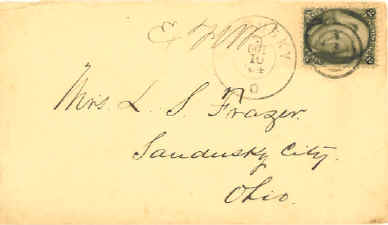 10
O
Mrs. L. S. Frazer.
Sandusky City.
Ohio.